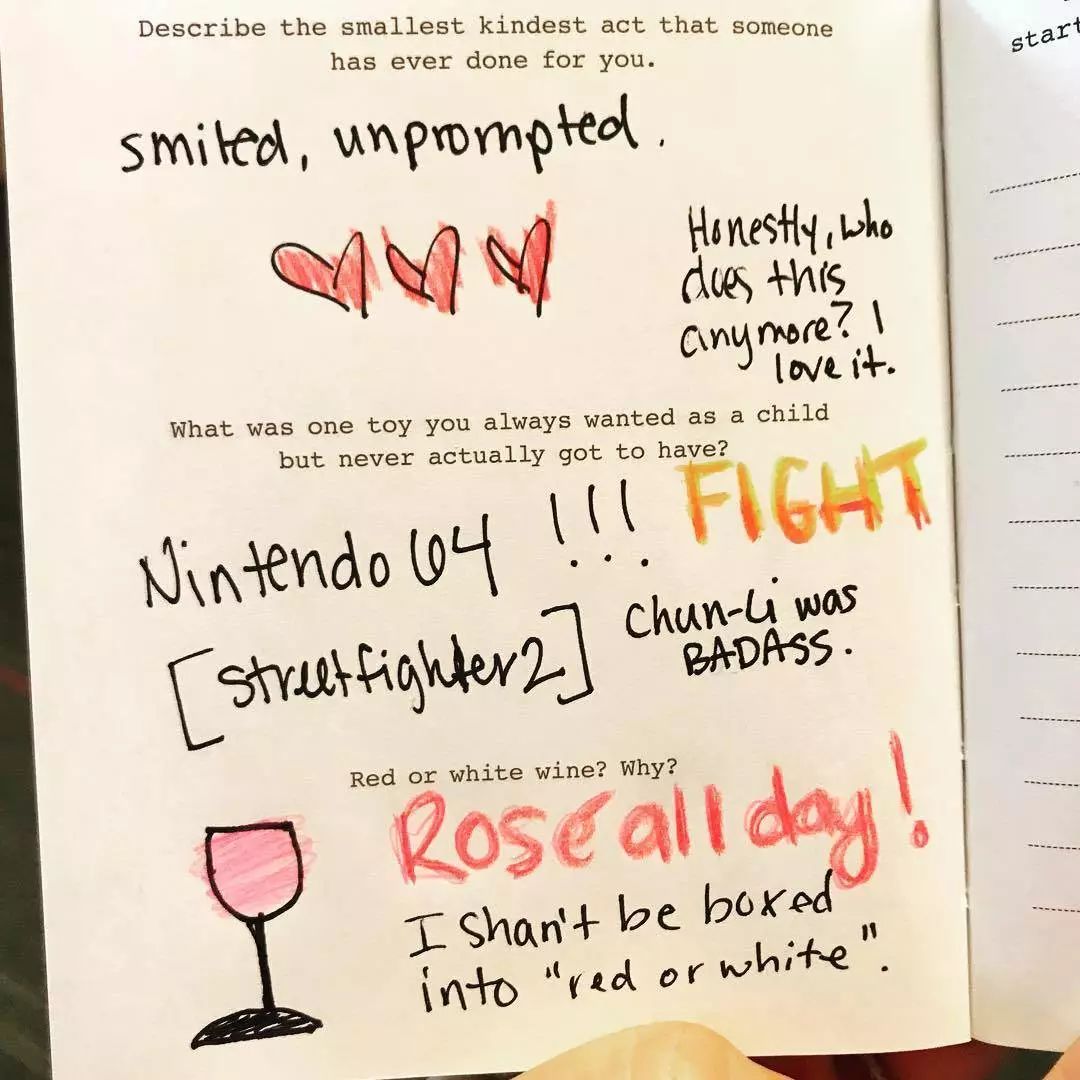 Describe the smallest kindest act that someone
has ever done for you.
smiled, unprompted.
Honestly, who
does this
anymore? I
love it.
What was one toy you always wanted as a child
but never actually got to have?
Nintendo 64 !!!
FIGHT
[streetfighter2]
Chun-Li was
BADASS.
Red or white wine? Why?
Rosé all day!
I shan't be boxed
into "red or white".
start